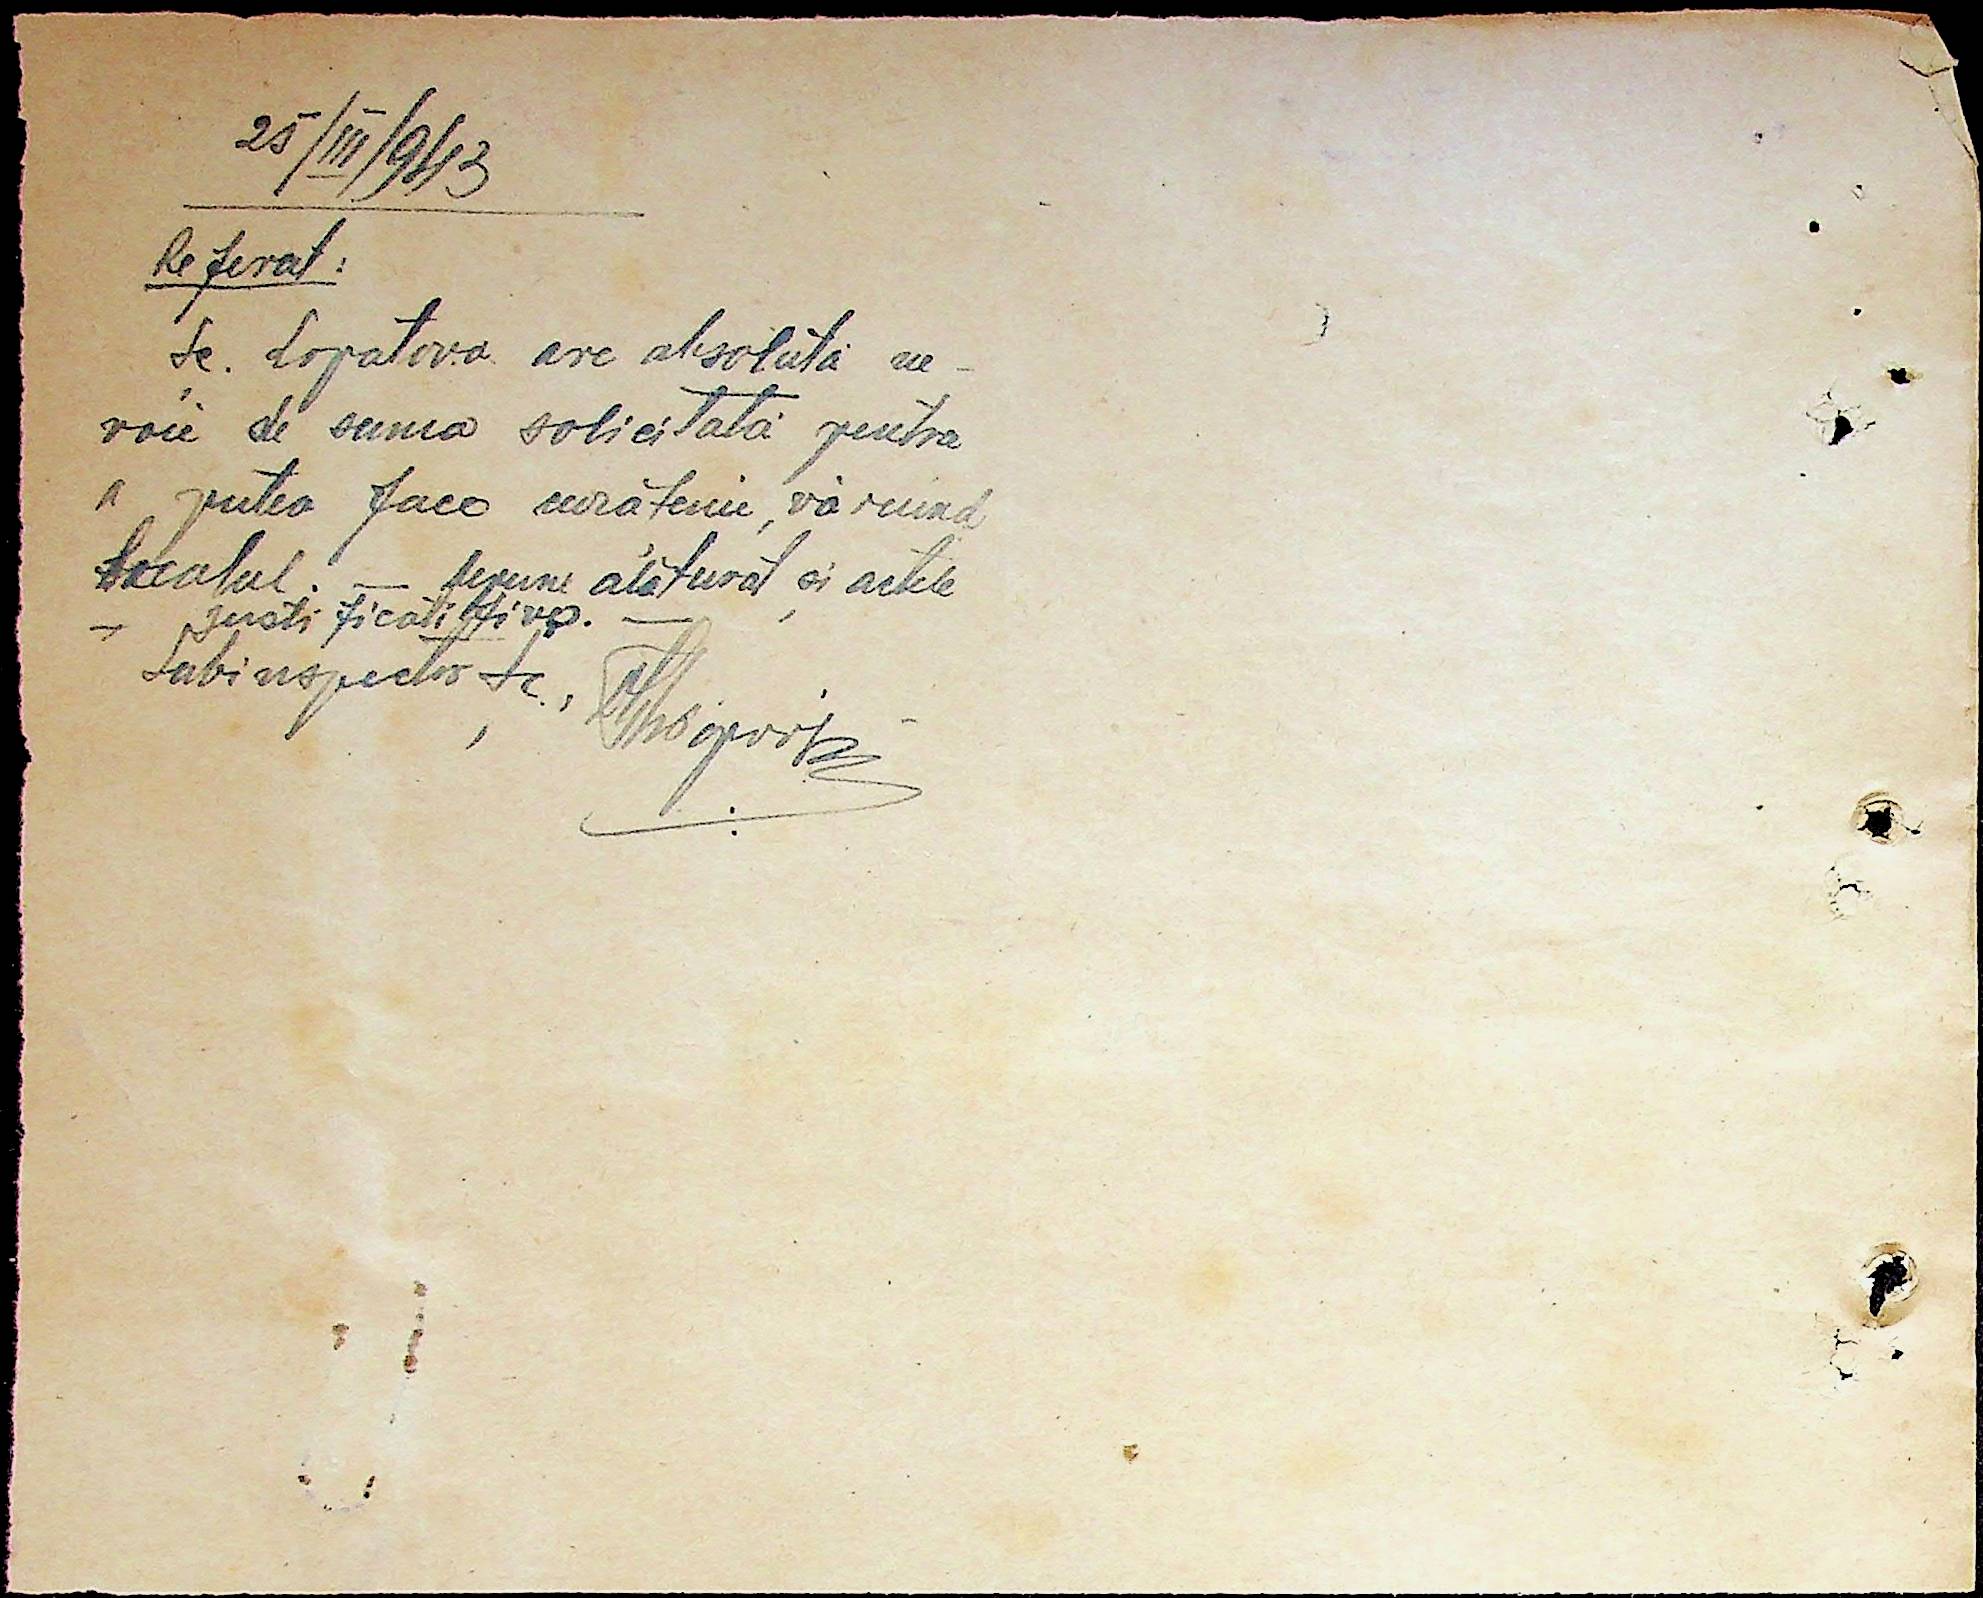 25/III/943
Referat:
Șc. Lopatova are absolută ne-
voie de suma solicitată pentru
a putea face curățenie, văruind
localul. — depune alăturat și actele
— justificatitive. —
Subinspector Șc.,